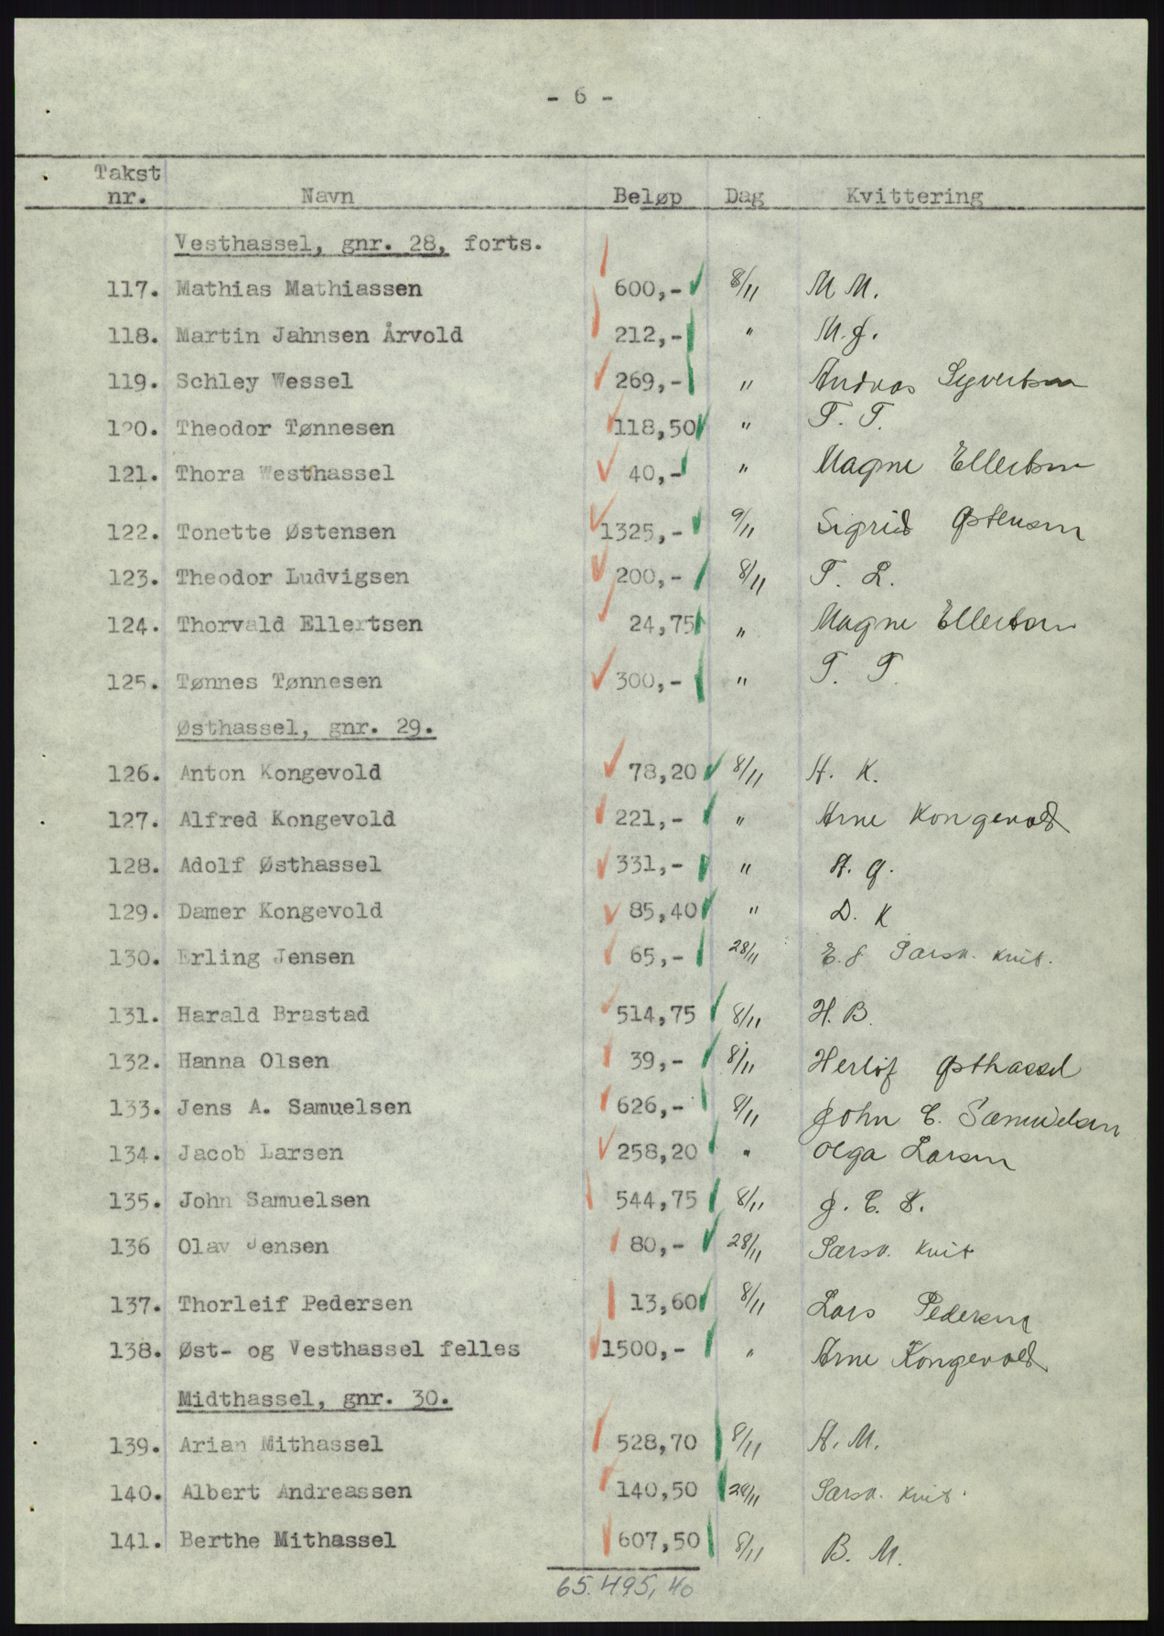 - 6 -
Takst nr. Navn Beløp Dag Kvittering
Vesthassel, gnr. 28, forts.
117. Mathias Mathiassen 600,- 8/11 M M.
118. Martin Jahnsen Årvold 212,- " M. J.
119. Schley Wessel 269,- " Andreas Syvertsen
120. Theodor Tønnesen 118,50 " T. T.
121. Thora Westhassel 40,- " Magne Ellertsen
122. Tonette Østensen 1325,- 9/11 Sigrid Østensen
123. Theodor Ludvigsen 200,- 8/11 T. L.
124. Thorvald Ellertsen 24,75 " Magne Ellertsen
125. Tønnes Tønnesen 300,- " T. T.
Østhassel, gnr. 29.
126. Anton Kongevold 78,20 8/11 A. K.
127. Alfred Kongevold 221,- " Arne Kongevold
128. Adolf Østhassel 331,- " A. Ø.
129. Damer Kongevold 85,40 " D. K
130. Erling Jensen 65,- 28/11 E. J Særsk. kvit.
131. Harald Brastad 514,75 8/11 H. B.
132. Hanna Olsen 39,- 8/11 Herlof Østhassel
133. Jens A. Samuelsen 626,- 8/11 John C. Samuelsen
134. Jacob Larsen 258,20 " Olga Larsen
135. John Samuelsen 544,75 8/11 J. C. S.
136 Olav Jensen 80,- 28/11 Særsk. kvit
137. Thorleif Pedersen 13,60 8/11 Lars Pedersen
138. Øst- og Vesthassel felles 1500,- " Arne Kongevold
Midthassel, gnr. 30.
139. Arian Mithassel 528,70 8/11 A. M.
140. Albert Andreassen 140,50 28/11 Særsk. kvit.
141. Berthe Mithassel 607,50 8/11 B. M.
65.495,40